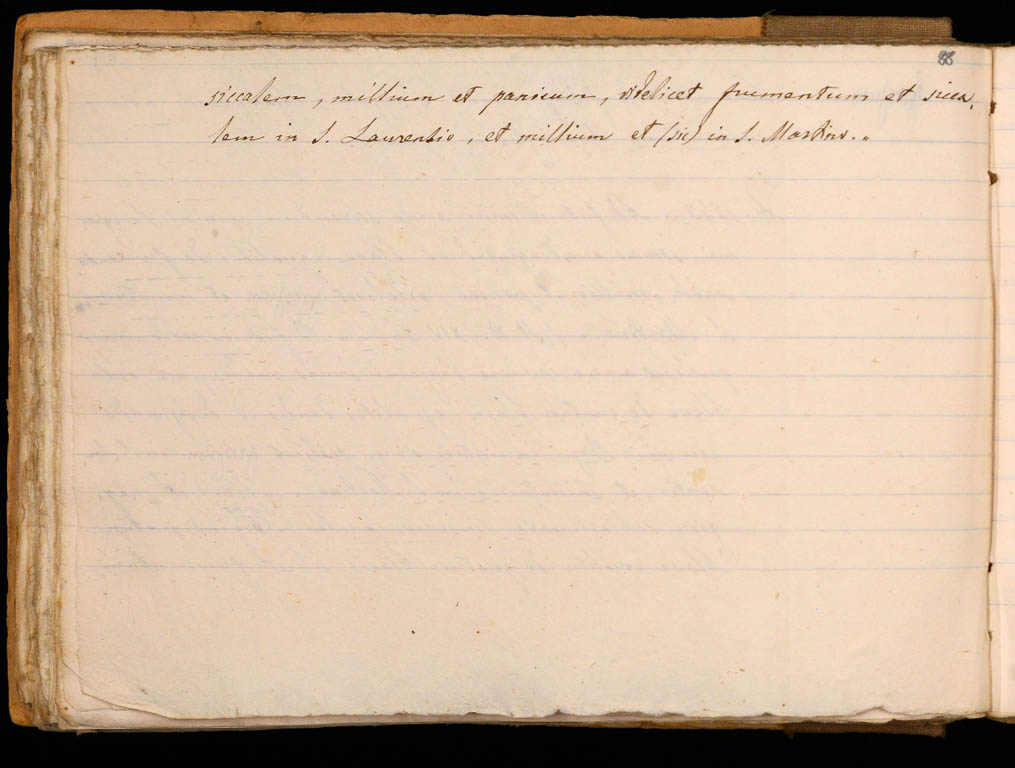 88
siccalem, millium et panicum, videlicet frumentum et sicca,
lem in S. Laurentio, et millium et (sic) in S. Martino.„